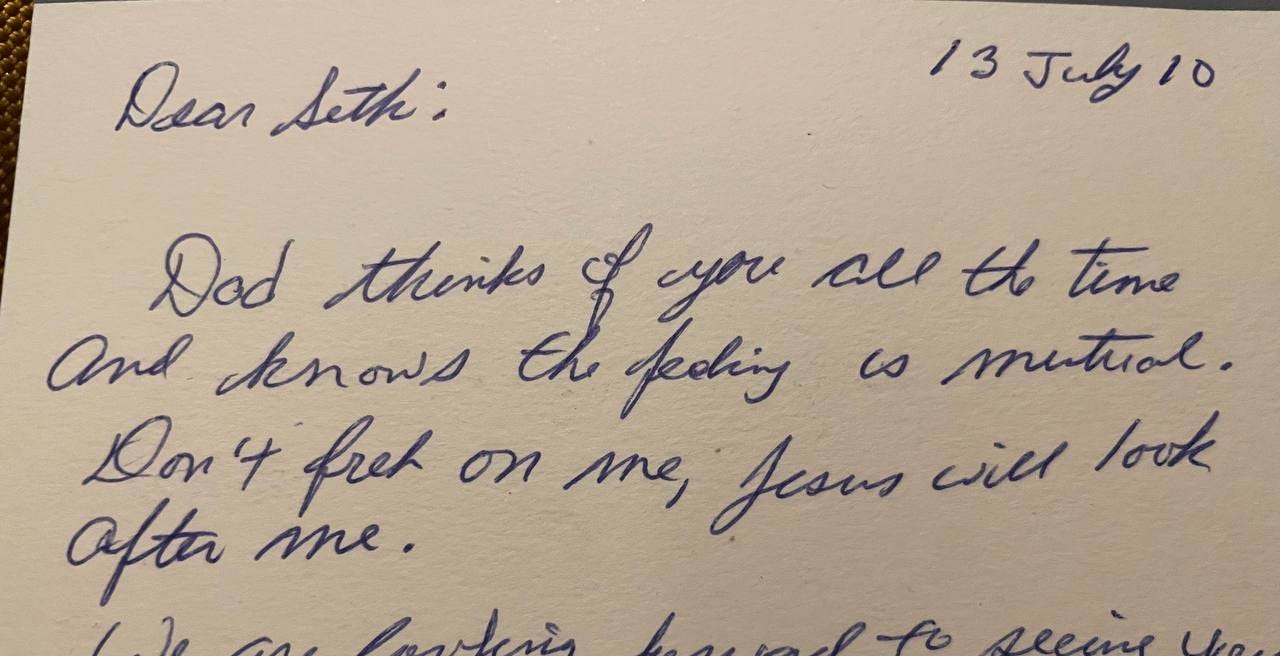 13 July 10
Dear Seth:
Dad thinks of you all the time
and knows the feeling is mutual.
Don't fret on me, Jesus will look
after me.
We are looking forward to seeing you